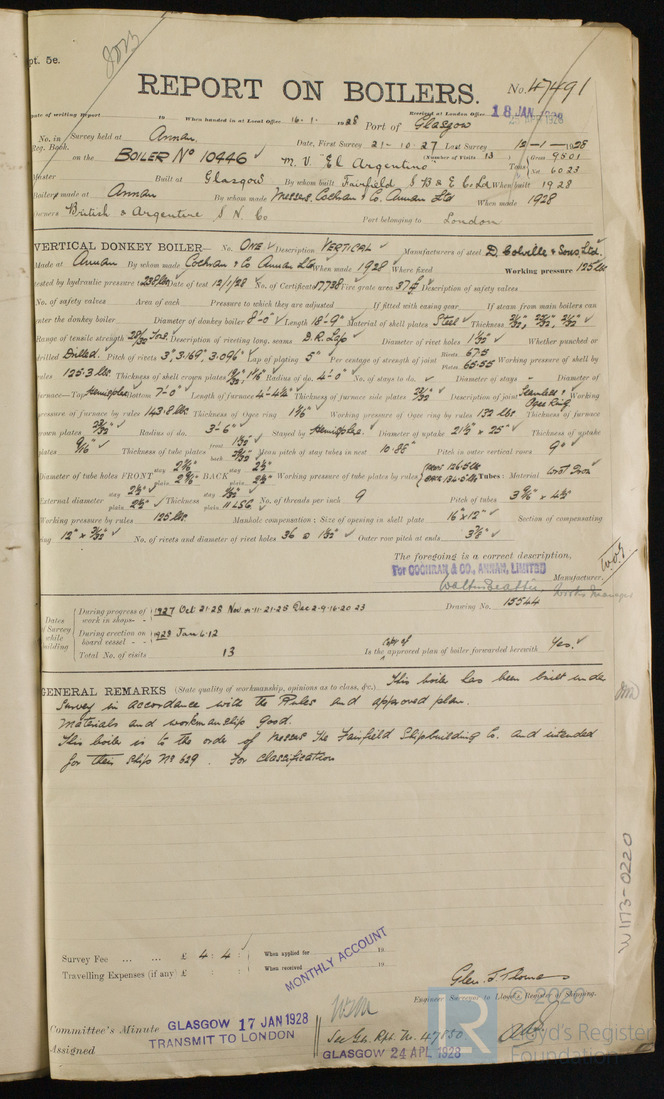 pt. 5e.
REPORT ON BOILERS.
No. 47491
Date of writing Report 19 When handed in at Local Office 16-1-1928 Received at London Office 18 JAN 1928
Port of Glasgow
No. in Reg. Book. Survey held at Annan Date, First Survey 21-10-27 Last Survey 12-1-1928
on the BOILER No 10446 M.V. "El Argentino" (Number of Visits 13) Tons Gross 9501 Net 6023
Master Built at Glasgow By whom built Fairfield S B & E Co Ld When built 1928
Boiler made at Annan By whom made Messrs. Cochran & Co. Annan Ltd When made 1928
Owners British & Argentine S N Co Port belonging to London
VERTICAL DONKEY BOILER— No. ONE Description VERTICAL Manufacturers of steel D. Colville & Sons Ltd.
Made at Annan By whom made Cochran & Co Annan Ltd When made 1928 Where fixed Working pressure 125 lbs
tested by hydraulic pressure to 238 lbs Date of test 12/1/28 No. of Certificate 17738 Fire grate area 37 Description of safety valves
No. of safety valves Area of each Pressure to which they are adjusted If fitted with easing gear If steam from main boilers can
enter the donkey boiler Diameter of donkey boiler 8'-0" Length 18'-9" Material of shell plates Steel Thickness
Range of tensile strength Description of riveting long. seams D.R. Lap Diameter of rivet holes Whether punched or
drilled Drilled. Pitch of rivets 3", 3.169", 3.096" Lap of plating 5" Per centage of strength of joint Rivets 67.5 Plates 65.55 Working pressure of shell by
rules 125.3 lbs. Thickness of shell crown plates Radius of do. 4'-0" No. of stays to do. Diameter of stays Diameter of
furnace—Top Hemisphere Bottom 7'-0" Length of furnace 4'-4¼" Thickness of furnace side plates Description of joint Seamless & Ogee Ring Working
pressure of furnace by rules 143.8 lbs Thickness of Ogee ring Working pressure of Ogee ring by rules 132 lbs Thickness of furnace
crown plates Radius of do. 3'-6" Stayed by Hemisphere. Diameter of uptake 21½" x 25" Thickness of uptake
plates 9/16" Thickness of tube plates front back Mean pitch of stay tubes in nest 10.85" Pitch in outer vertical rows 9"
Diameter of tube holes FRONT stay plain BACK stay 2½" plain 2½" Working pressure of tube plates by rules Front 126.5 lbs Back 134.5 lbs Tubes: Material Wrot Iron
External diameter stay 2½" plain 2½" Thickness stay plain No. of threads per inch 9 Pitch of tubes
Working pressure by rules 125 lbs. Manhole compensation: Size of opening in shell plate 16" x 12" Section of compensating
ring No. of rivets and diameter of rivet holes 36 @ Outer row pitch at ends
The foregoing is a correct description,
For COCHRAN & CO., ANNAN, LIMITED
Walter Beattie Manufacturer.
Works Manager
Dates of Survey while building
During progress of work in shops - - 1927 Oct 21.28 Nov 11.21.28 Dec 2.9.16.20.23 Drawing No. 15544
During erection on board vessel - - - 1928 Jan 6.12
Total No. of visits 13 Is the copy of approved plan of boiler forwarded herewith Yes.
GENERAL REMARKS (State quality of workmanship, opinions as to class, &c.) This boiler has been built under
survey in accordance with the Rules and approved plan.
Materials and workmanship good.
This boiler is to the order of Messrs The Fairfield Shipbuilding Co. and intended
for their Ship No 629. For classification
W1173-0220
Survey Fee ... ... £ 4 : 4 : When applied for 19
Travelling Expenses (if any) £ : : When received 19
MONTHLY ACCOUNT
Engineer Surveyor to Lloyd's Register of Shipping.
Committee's Minute GLASGOW 17 JAN 1928
Assigned TRANSMIT TO LONDON
See Gls. Rpt. No. 47850
GLASGOW 24 APL 1928
© 2020
LR
Lloyd's Register
Foundation